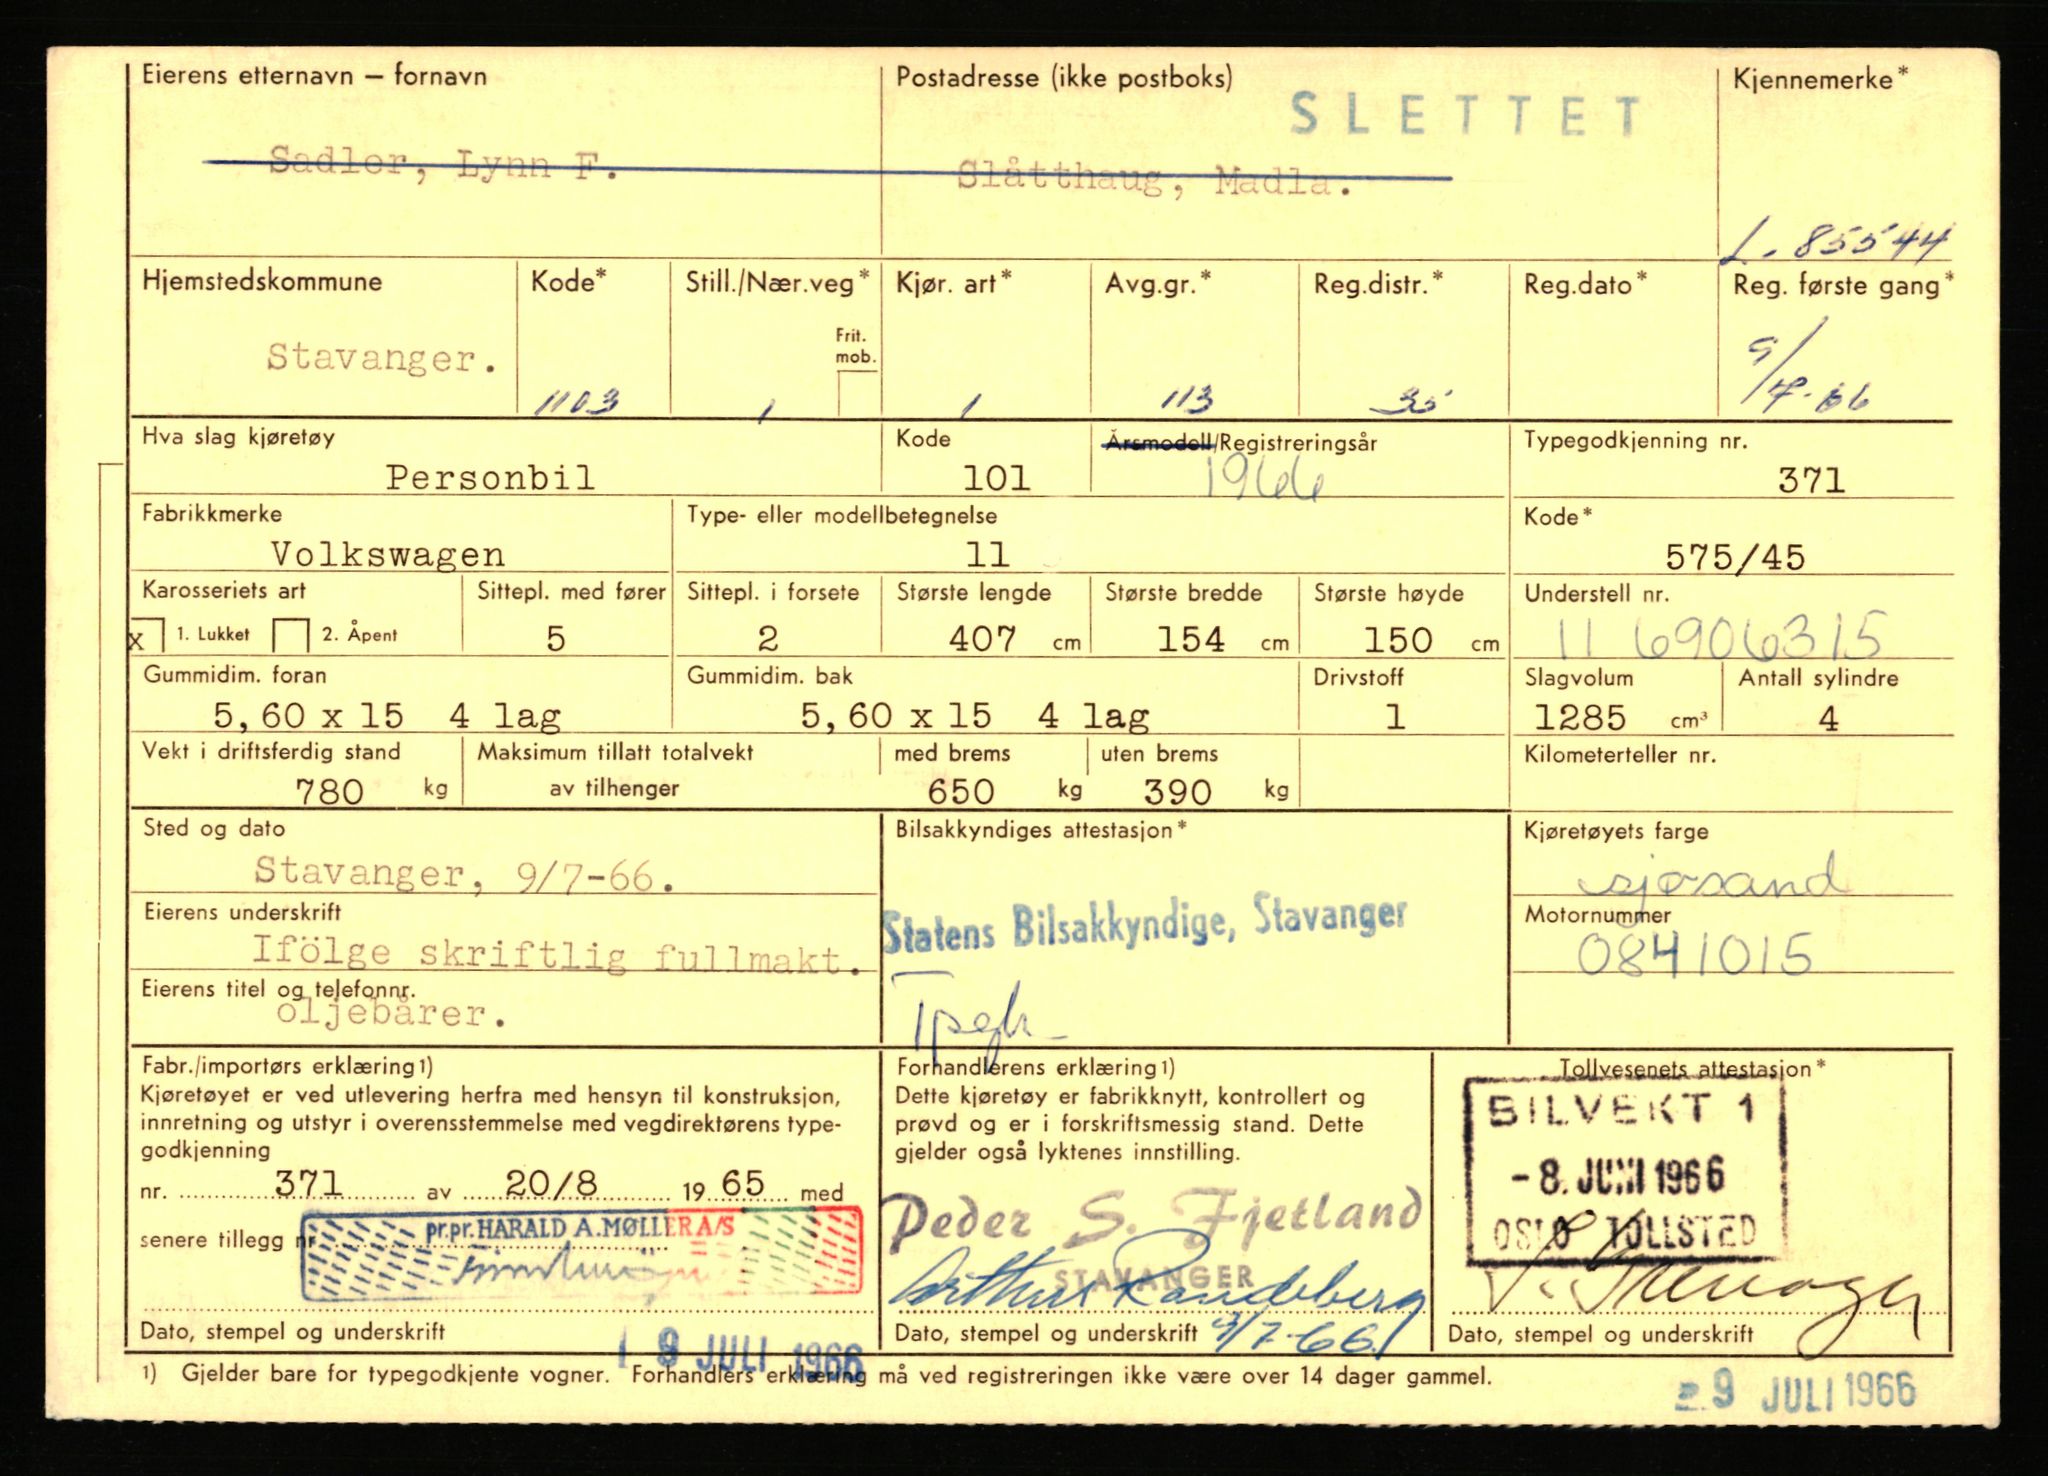 Eierens etternavn – fornavn
Postadresse (ikke postboks)
Kjennemerke*
SLETTET
Sadler, Lynn F.
Slåtthaug, Madla.
L - 85544
Hjemstedskommune
Kode*
Still./Nær.veg*
Kjør. art*
Avg.gr.*
Reg.distr.*
Reg.dato*
Reg. første gang*
Frit. mob.
Stavanger.
1103
1
1
113
35
9/7-66
Hva slag kjøretøy
Kode
Årsmodell/Registreringsår
Typegodkjenning nr.
Personbil
101
1966
371
Fabrikkmerke
Type- eller modellbetegnelse
Kode*
Volkswagen
11
575/45
Karosseriets art
Sittepl. med fører
Sittepl. i forsete
Største lengde
Største bredde
Største høyde
Understell nr.
x 1. Lukket 2. Åpent
5
2
407 cm
154 cm
150 cm
11 6906315
Gummidim. foran
Gummidim. bak
Drivstoff
Slagvolum
Antall sylindre
5,60 x 15 4 lag
5,60 x 15 4 lag
1
1285 cm³
4
Vekt i driftsferdig stand
Maksimum tillatt totalvekt
med brems
uten brems
Kilometerteller nr.
780 kg
av tilhenger
650 kg
390 kg
Sted og dato
Bilsakkyndiges attestasjon*
Kjøretøyets farge
Stavanger, 9/7-66.
sjøsand
Eierens underskrift
Statens Bilsakkyndige, Stavanger
Motornummer
Ifölge skriftlig fullmakt.
0841015
Eierens titel og telefonnr.
oljebårer.
Tpgk
Fabr./importørs erklæring1)
Forhandlerens erklæring1)
Tollvesenets attestasjon*
Kjøretøyet er ved utlevering herfra med hensyn til konstruksjon,
innretning og utstyr i overensstemmelse med vegdirektørens type-
godkjenning
Dette kjøretøy er fabrikknytt, kontrollert og
prøvd og er i forskriftsmessig stand. Dette
gjelder også lyktenes innstilling.
BILVEKT 1
- 8. JUNI 1966
OSLO TOLLSTED
nr. 371 av 20/8 1965 med
senere tillegg nr.
pr.pr. HARALD A. MØLLER A/S
Peder S. Fjetland
STAVANGER
Arthur Randeberg
Dato, stempel og underskrift
Dato, stempel og underskrift 9/7-66
Dato, stempel og underskrift
1 9 JULI 1966
1) Gjelder bare for typegodkjente vogner. Forhandlers erklæring må ved registreringen ikke være over 14 dager gammel.
- 9 JULI 1966